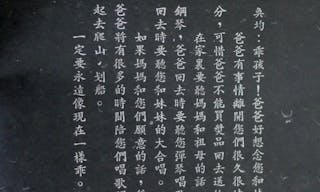 奐均:乖孩子!爸爸好想念您和妹
爸爸有事情離開您們很久很
分,可惜爸爸不能買獎品回去送
在家裏要聽媽媽和祖母的話
鋼琴,爸爸回去時要聽您彈琴唱
回去時要聽您和妹妹的大合唱。
如果媽媽和您們願意的話,
爸爸將有很多的時間陪您們唱歌
起去爬山,划船。
一定要永遠像現在一樣乖。